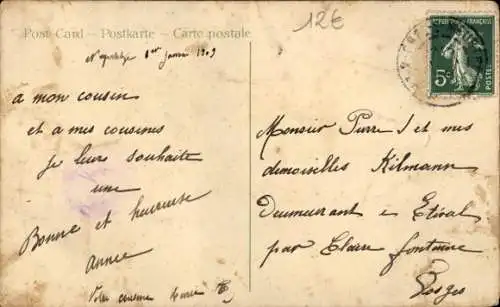 12€
Post-Card – Postkarte – Carte postale
1er Janvier 1909
a mon cousin
et a mes cousines
je leurs souhaite
une
Bonne et heureuse
année
Votre cousine
Monsieur Pierre et mes
demoiselles Kilmann
Deumeurant a Etival
par Claire fontaine
Vosges
5c
POSTES